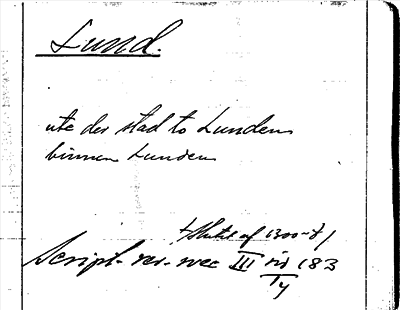 Lund.
ute der stad to Lunden
binnen Lunden
(Slutet af 1300-t)
Script. rer. svec III sid 183
Ty